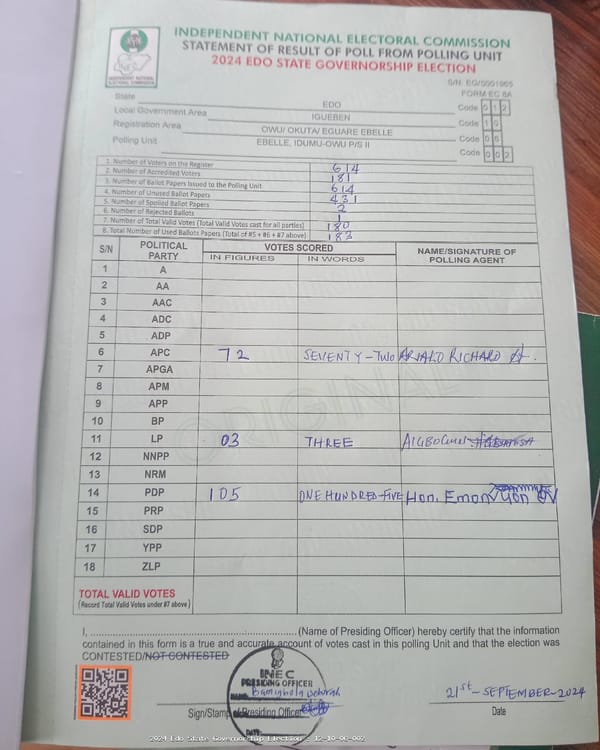 INDEPENDENT NATIONAL ELECTORAL COMMISSION
STATEMENT OF RESULT OF POLL FROM POLLING UNIT
2024 EDO STATE GOVERNORSHIP ELECTION
INEC
INDEPENDENT NATIONAL
ELECTORAL COMMISSION
S/N: EG/0001965
FORM EC 8A
State EDO Code 0 1 2
Local Government Area IGUEBEN Code 1 0
Registration Area OWU/ OKUTA/ EGUARE EBELLE Code 0 6
Polling Unit EBELLE, IDUMU-OWU P/S II Code 0 0 2
1. Number of Voters on the Register 614
2. Number of Accredited Voters 181
3. Number of Ballot Papers Issued to the Polling Unit 614
4. Number of Unused Ballot Papers 431
5. Number of Spoiled Ballot Papers 2
6. Number of Rejected Ballots 1
7. Number of Total Valid Votes (Total Valid Votes cast for all parties) 180
8. Total Number of Used Ballots Papers (Total of #5 + #6 + #7 above) 183
S/N POLITICAL PARTY VOTES SCORED NAME/SIGNATURE OF POLLING AGENT
IN FIGURES IN WORDS
1 A
2 AA
3 AAC
4 ADC
5 ADP
6 APC 72 SEVENTY-TWO RICHARD
7 APGA
8 APM
9 APP
10 BP
11 LP 03 THREE
12 NNPP
13 NRM
14 PDP 105 ONE HUNDRED-FIVE Hon. Emon
15 PRP
16 SDP
17 YPP
18 ZLP
ORIGINAL
TOTAL VALID VOTES
(Record Total Valid Votes under #7 above)
I, ..........................................................(Name of Presiding Officer) hereby certify that the information
contained in this form is a true and accurate account of votes cast in this polling Unit and that the election was
CONTESTED/NOT CONTESTED
INEC
PRESIDING OFFICER
NAME: Bamgbola Deborah
SIGN:
DATE:
21st - SEPTEMBER - 2024
Sign/Stamp of Presiding Officer
Date
2024 Edo State Governorship Election - 12-10-06-002